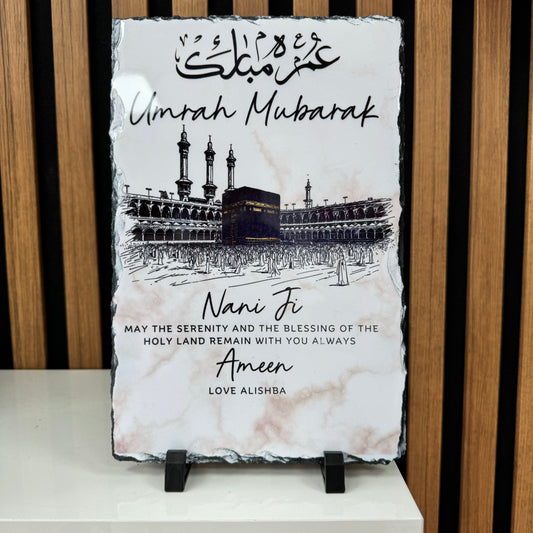 عمرة مبارك
Umrah Mubarak
Nani Ji
MAY THE SERENITY AND THE BLESSING OF THE
HOLY LAND REMAIN WITH YOU ALWAYS
Ameen
LOVE ALISHBA